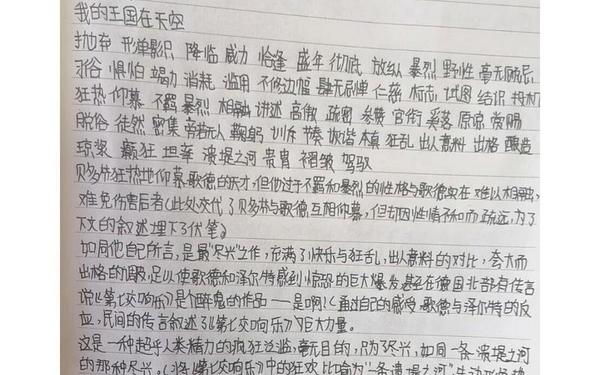 我的王国在天空
抛弃 形单影只 降临 威力 恰逢 盛年 彻底 放纵 暴烈 野性 毫无顾忌
习俗 惧怕 竭力 消耗 滥用 不修边幅 肆无忌惮 仁慈 标志 试图 结识 投机
狂热 仰慕 不羁 暴烈 相融 讲述 高傲 疏密 参赞 官衔 奚落 原谅 赏赐
脱俗 徒然 密集 旁若无人 鞠躬 训斥 揍 诙谐 狂乱 出人意料 出格 酿造
琼浆 癫狂 坦率 溃堤之河 贵胄 褶皱 驾驭
贝多芬狂热地仰慕歌德的天才,但他过于不羁和暴烈的性格与歌德实在难以相融,
难免伤害后者(此处交代了贝多芬与歌德互相仰慕,但却因性情不和而疏远,为了
下文的叙述埋下了伏笔)
如同他自己所言,是最"尽兴"之作,充满了快乐与狂乱,出人意料的对比,夸大而
出格的,足以使歌德和泽尔特感到惊恐的巨大爆发甚至在德国北部有传言
说《第七交响乐》是个醉鬼的作品——是啊!(通过自己的感受,歌德与泽尔特的反
应,民间的传言叙述了《第七交响乐》巨大力量。
这是一种超乎人类精力的疯狂泛滥,毫无目的,只为了尽兴,如同一条溃堤之河
的那种尽兴。(将《第七交响乐》中的狂欢比喻为"一条溃堤之河"生动形象地